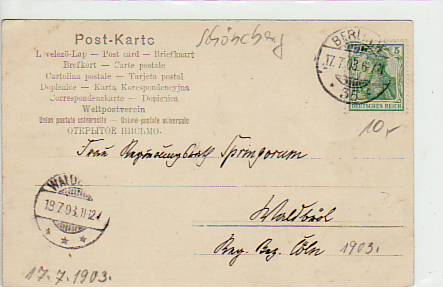 Post-Karte
Schöneberg
Levelező-Lap — Post card — Briefkaart
Brefkort — Carte postale
Cartolina postale — Tarjeta postal
Dopisnice — Karta Korespondencyjna
Correspondenzkarte — Dopisnica
Weltpostverein
Union postale universelle — Unione postale universale
ОТКРЫТОЕ ПИСЬМО.
BERLIN
17.7.03.
5
DEUTSCHES REICH
10,-
Frau Regierungsrath Springorum
WALD
18.7.03.11-12
Waldbröl
Reg. Bez. Cöln 1903.
17.7.1903.